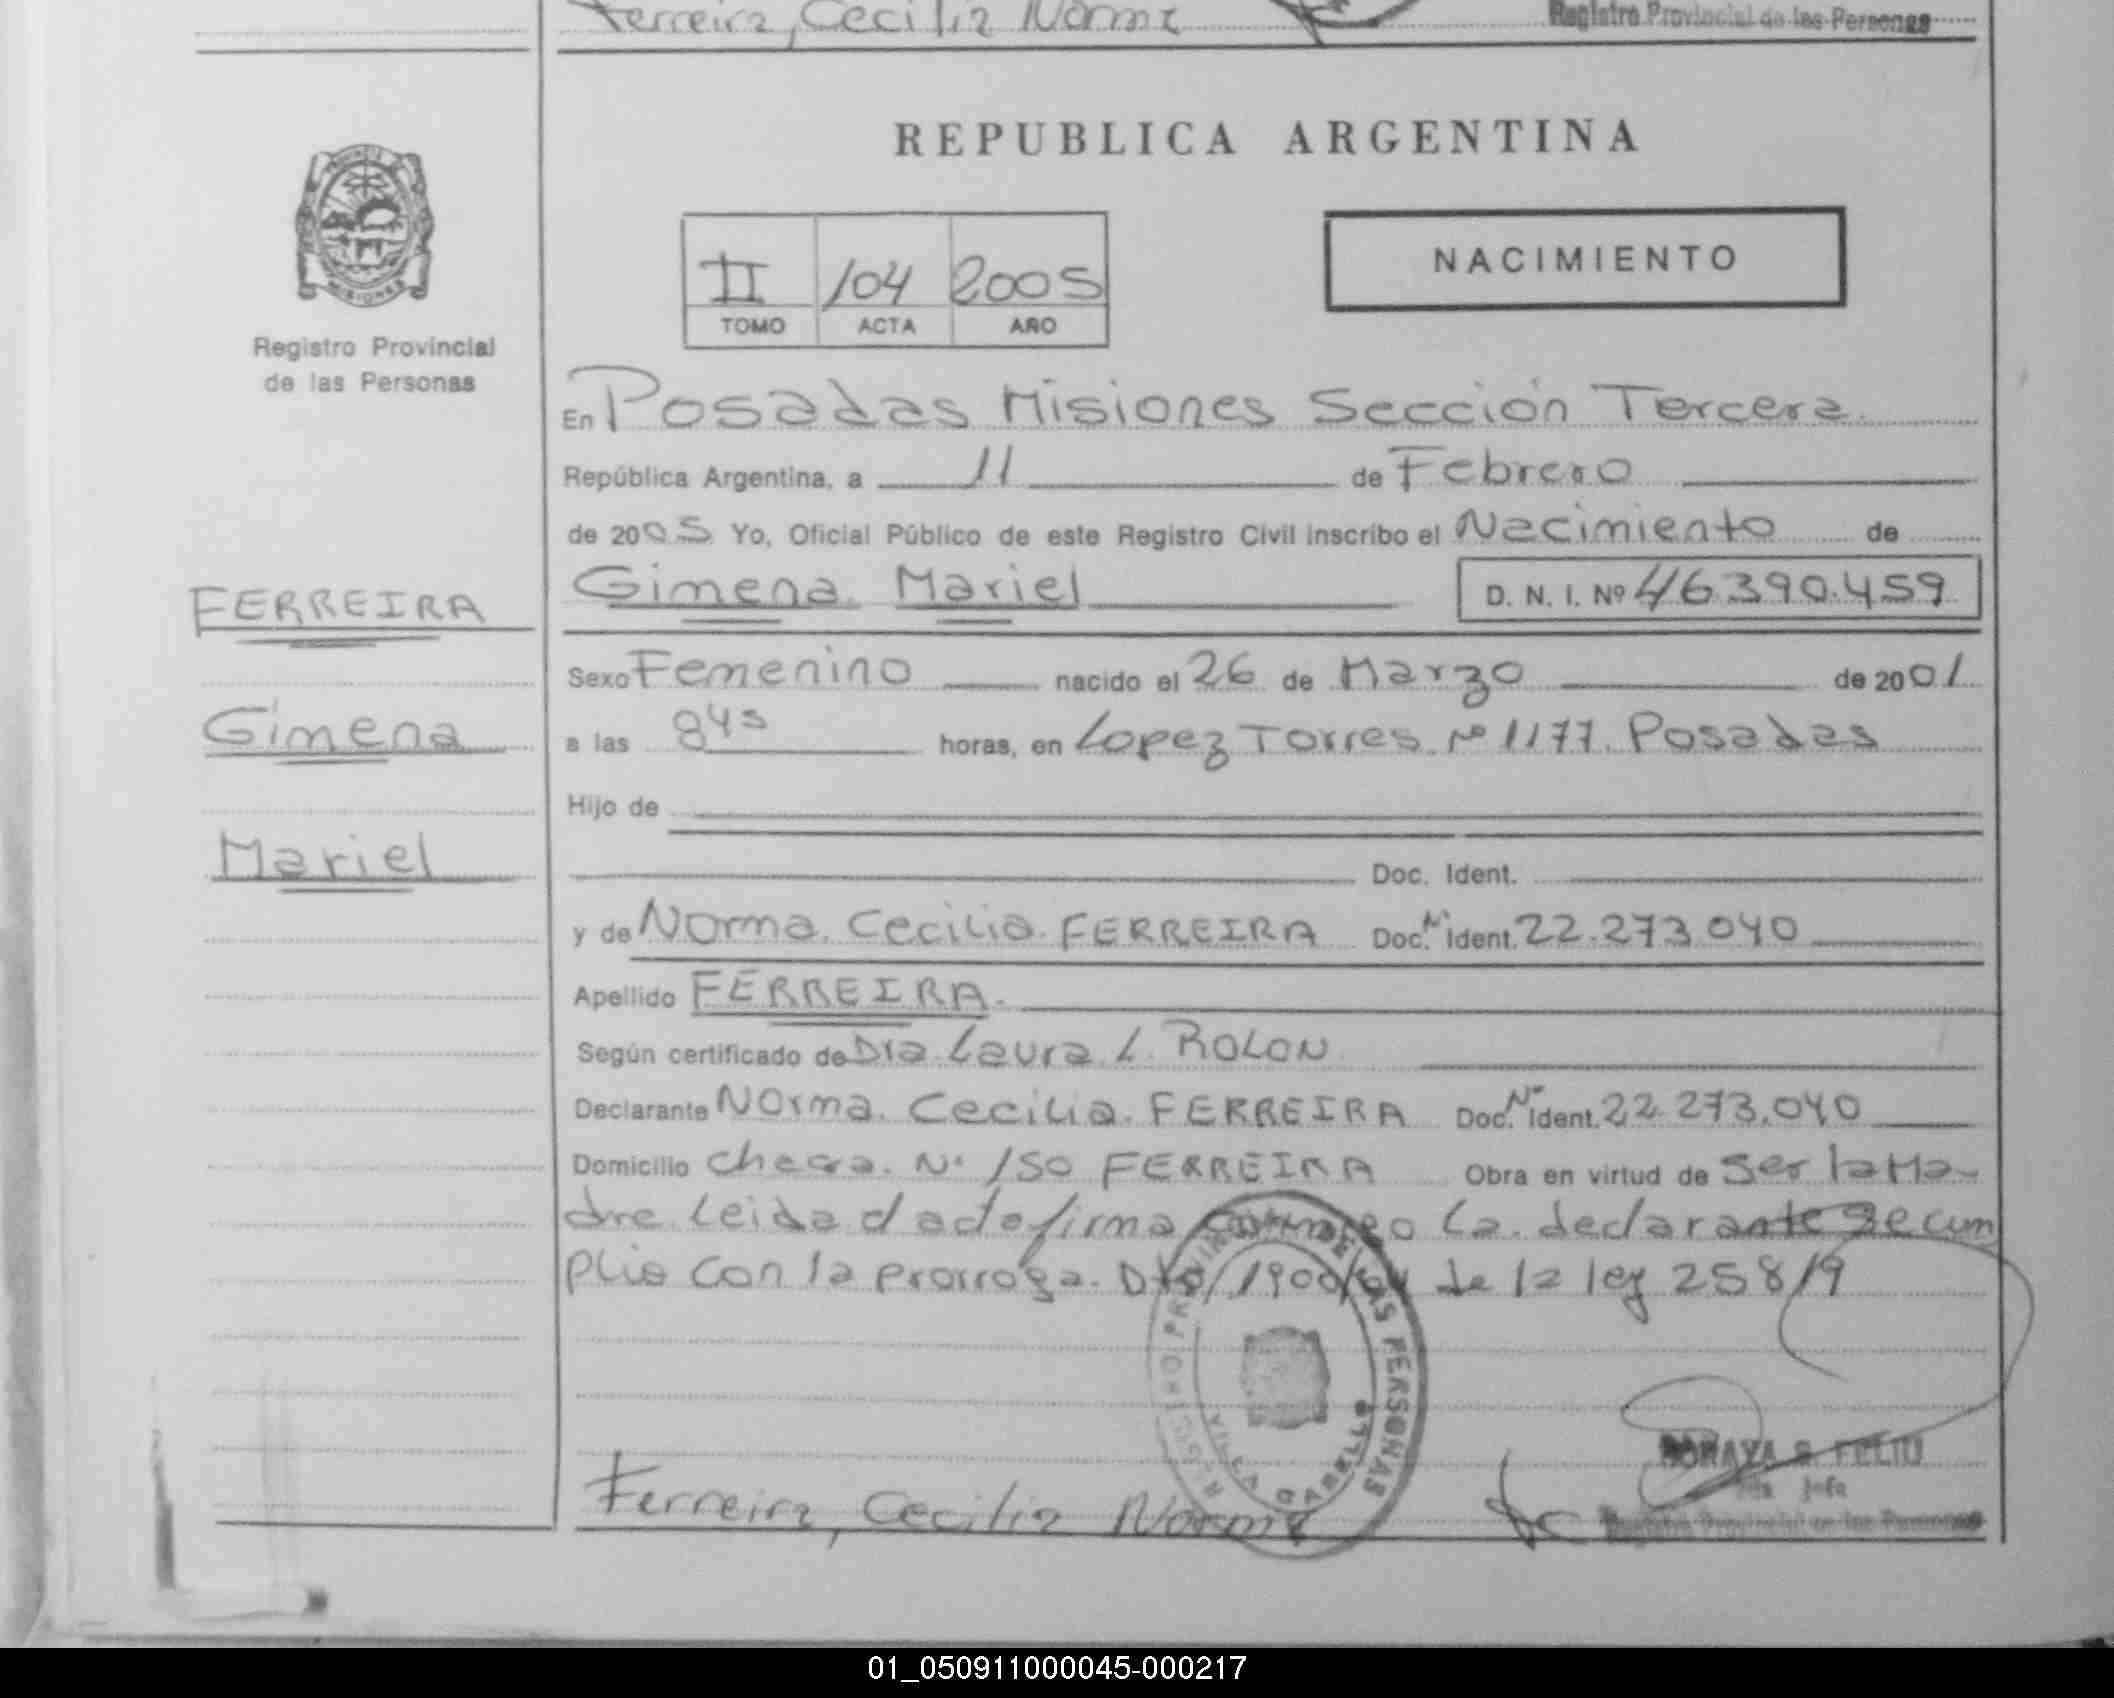 Ferreira, Cecilia Norma
Registro Provincial de las Personas
REPUBLICA ARGENTINA
II 104 2005
TOMO ACTA AÑO
NACIMIENTO
MISIONES
Registro Provincial
de las Personas
En Posadas Misiones Sección Tercera
República Argentina, a 11 de Febrero
de 2005 Yo, Oficial Público de este Registro Civil inscribo el Nacimiento de
Gimena Mariel D. N. I. Nº 46.390.459
FERREIRA
Gimena
Mariel
Sexo Femenino nacido el 26 de Marzo de 2001
a las 8 45 horas, en Lopez Torres Nº 1177 Posadas
Hijo de
Doc. Ident.
y de Norma Cecilia FERREIRA Doc. Nº Ident. 22.273.040
Apellido FERREIRA.
Según certificado de Dra Laura L. ROLON
Declarante Norma Cecilia FERREIRA Doc. Nº Ident. 22.273.040
Domicilio Chacra Nº 150 FERREIRA Obra en virtud de Ser la Ma-
dre Leida el acta firma conmigo La declarante Se cum
plio con la prorroga Dto/1900/04 de la ley 25819
REGISTRO PROVINCIAL DE LAS PERSONAS
VILLA CABELLO
Ferreira, Cecilia Norma
SORAYA S. FELIU
Jefa
Registro Provincial de las Personas
01_050911000045-000217